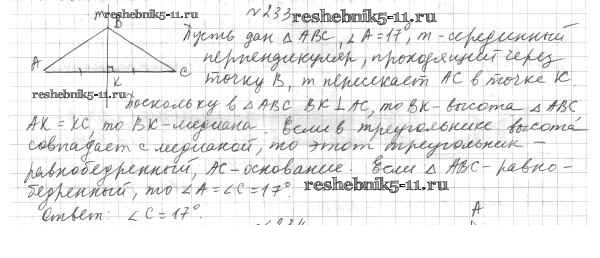 №233
reshebnik5-11.ru
m reshebnik5-11.ru
B
Пусть дан △ABC, ∠A=17°, m-серединный
перпендикуляр, проходящий через
A
точку B, m пересекает AC в точке K.
K
C
reshebnik5-11.ru
Поскольку в △ABC BK⊥AC, то BK-высота △ABC
AK=KC, то BK-медиана. Если в треугольнике высота
совпадает с медианой, то этот треугольник -
равнобедренный, AC-основание. Если △ABC-равно-
бедренный, то ∠A=∠C=17°.
reshebnik5-11.ru
Ответ: ∠C=17°.
A